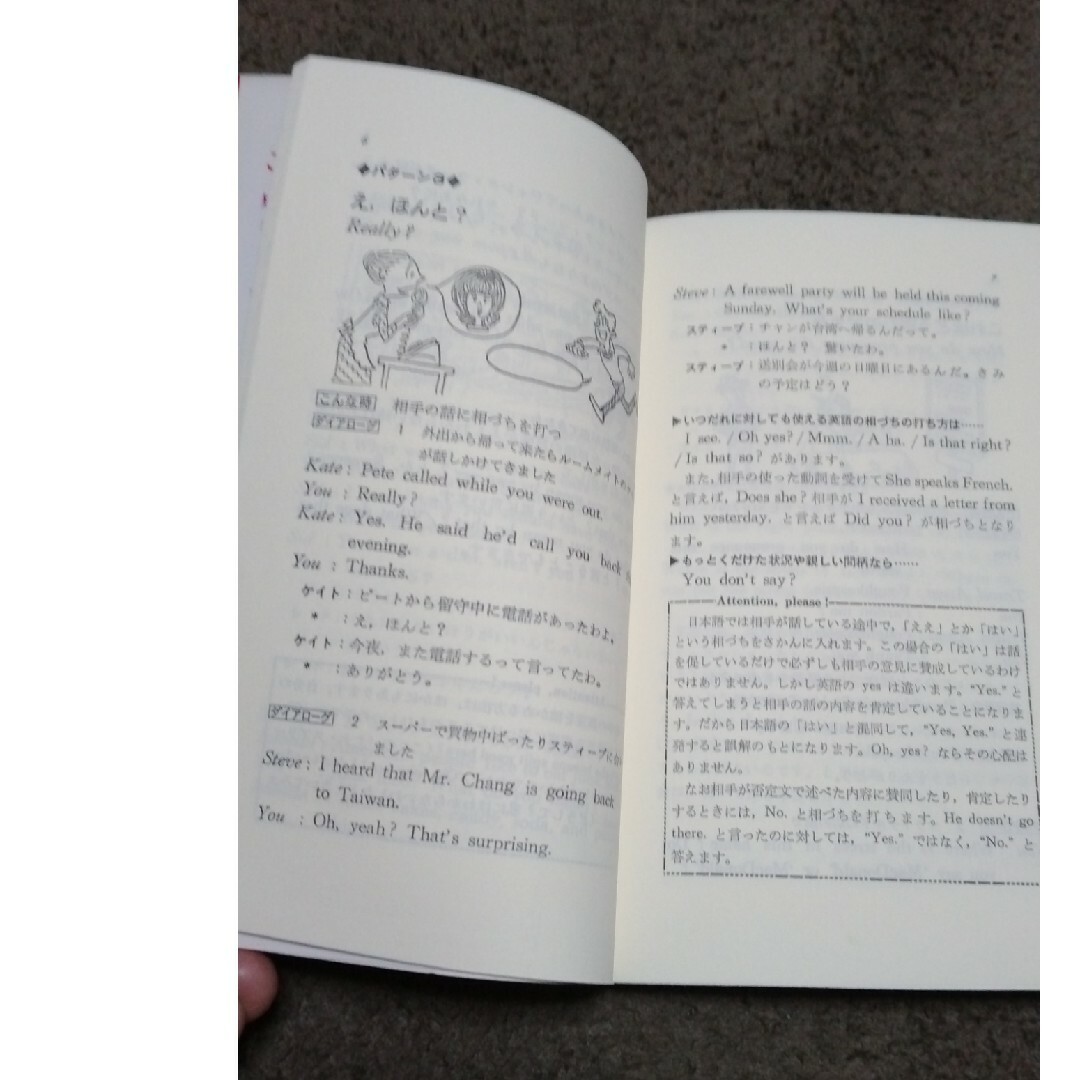 ◆パターン3◆
え，ほんと？
Really?
こんな時 相手の話に相づちを打つ
ダイアローグ 1 外出から帰って来たらルームメイトの
が話しかけてきました
Kate: Pete called while you were out.
You : Really?
Kate: Yes. He said he'd call you back
evening.
You : Thanks.
ケイト：ピートから留守中に電話があったわよ，
＊ ：え，ほんと？
ケイト：今夜，また電話するって言ってたわ。
＊ ：ありがとう。
ダイアローグ 2 スーパーで買物中ばったりスティーブに
ました
Steve: I heard that Mr. Chang is going back
to Taiwan.
You : Oh, yeah? That's surprising.
Steve: A farewell party will be held this coming
Sunday. What's your schedule like?
スティーブ：チャンが台湾へ帰るんだって。
＊ ：ほんと？ 驚いたわ。
スティーブ：送別会が今週の日曜日にあるんだ。きみ
の予定はどう？
▶いつだれに対しても使える英語の相づちの打ち方は……
I see. / Oh yes? / Mmm. / A ha. / Is that right?
/ Is that so? があります。
また，相手の使った動詞を受けて She speaks French.
と言えば，Does she? 相手が I received a letter from
him yesterday. と言えば Did you? が相づちとなり
ます。
▶もっとくだけた状況や親しい間柄なら……
You don't say?
Attention, please!
日本語では相手が話している途中で，「ええ」とか「はい」
という相づちをさかんに入れます。この場合の「はい」は話
を促しているだけで必ずしも相手の意見に賛成しているわけ
ではありません。しかし英語の yes は違います。“Yes.” と
答えてしまうと相手の話の内容を肯定していることになりま
す。だから日本語の「はい」と混同して，“Yes, Yes.” と連
発すると誤解のもとになります。Oh, yes? ならその心配は
ありません。
なお相手が否定文で述べた内容に賛同したり，肯定したり
するときには，No. と相づちを打ちます。He doesn't go
there. と言ったのに対しては，“Yes.” ではなく，“No.” と
答えます。